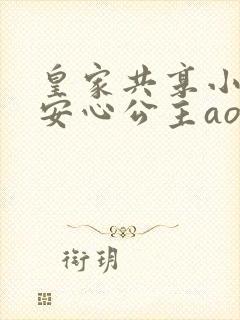 皇家共享小
安心公主ao
衔玥